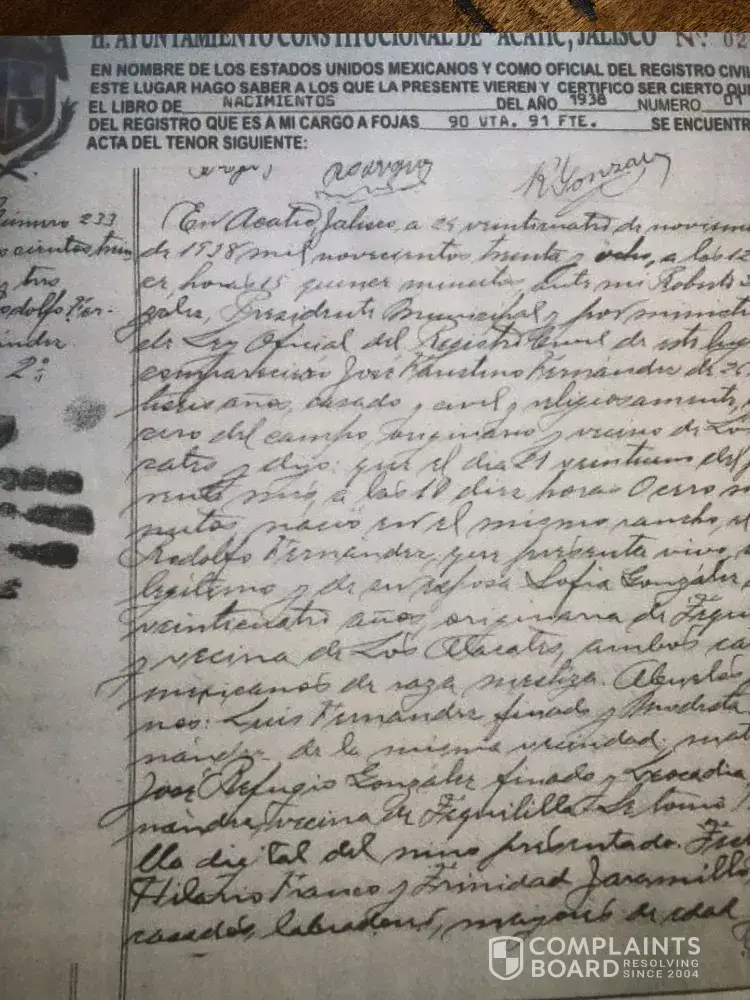 H. AYUNTAMIENTO CONSTITUCIONAL DE ACATIC, JALISCO Nº. 02
EN NOMBRE DE LOS ESTADOS UNIDOS MEXICANOS Y COMO OFICIAL DEL REGISTRO CIVIL
ESTE LUGAR HAGO SABER A LOS QUE LA PRESENTE VIEREN Y CERTIFICO SER CIERTO QUE
EL LIBRO DE NACIMIENTOS DEL AÑO 1938 NUMERO 01
DEL REGISTRO QUE ES A MI CARGO A FOJAS 90 VTA. 91 FTE. SE ENCUENTR
ACTA DEL TENOR SIGUIENTE:
R. Gonzalez
número 233
os cientos trein
y tres
Rodolfo Fer-
nández
2º
En Acatic, Jalisco, a 24 veinticuatro de noviem
de 1938 mil novecientos treinta y ocho, a las 12
ce horas 15 quince minutos, ante mi Roberto
zález, Presidente Municipal y por minist
de Ley Oficial del Registro Civil de este lug
compareció José Faustino Fernández de 26
tiseis años, casado y civil y religiosamente,
cero del campo, originario y vecino de Los
catos y dijo: que el día 21 veintiuno del
sente mes, a las 10 diez horas 0 cero mi
nutos nació en el mismo rancho,
Rodolfo Fernández, que presenta vivo,
legítimo y de su esposa Sofía González
veinticuatro años, originaria de Tequi
y vecina de Los ambos ca
mexicanos de raza mestiza. Abuelos
nos: Luis Fernández finado y Modesta
nández de la misma vecindad; mat
José Refugio González finado y Leocadia
nández, vecina de Tequililla. Se tomó
lla digital del niño presentado. Fue
Hilario Franco y Trinidad Jaramillo
casados, labradores, mayores de edad
COMPLAINTS
BOARD RESOLVING
SINCE 2004